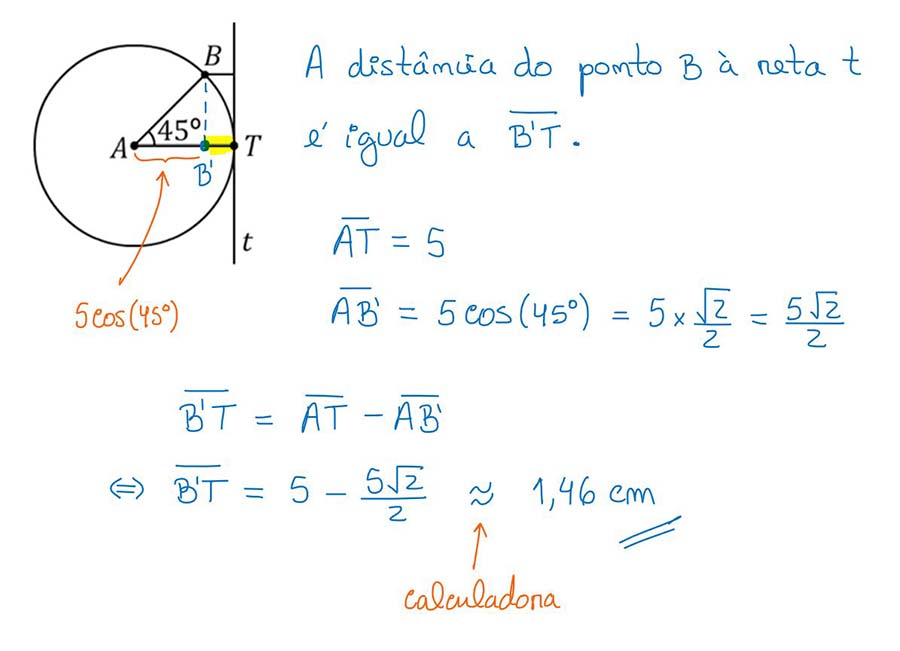 B
A 45° T
B'
t
5cos(45°)
A distância do ponto B à reta t
é igual a B̅'̅T̅.
A̅T̅ = 5
A̅B̅'̅ = 5cos(45°) = 5×√2/2 = 5√2/2
B̅'̅T̅ = A̅T̅ - A̅B̅'̅
⇔ B̅'̅T̅ = 5 - 5√2/2 ≈ 1,46 cm
calculadora